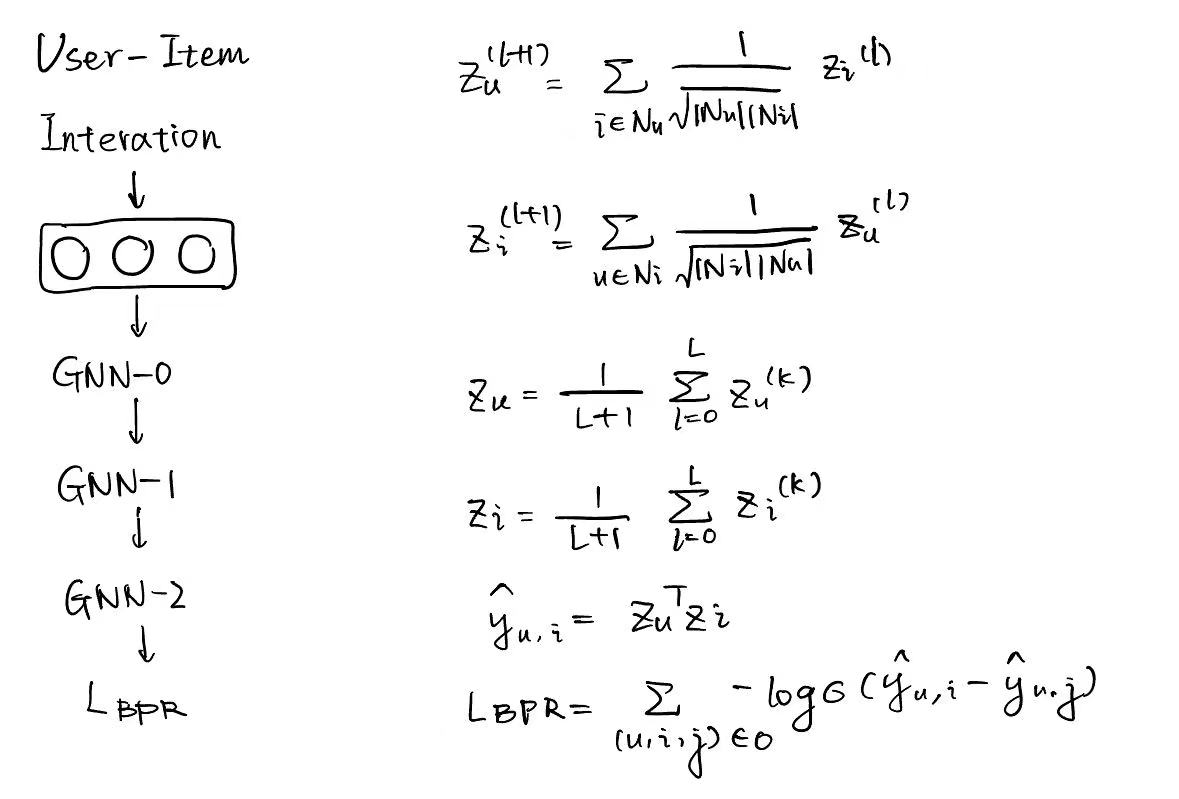 User-Item
Interation
GNN-0
GNN-1
GNN-2
L_BPR
z_u^(l+1) = ∑_{i∈N_u} 1/√|N_u||N_i| z_i^(l)
z_i^(l+1) = ∑_{u∈N_i} 1/√|N_i||N_u| z_u^(l)
z_u = 1/(L+1) ∑_{l=0}^{L} z_u^(k)
z_i = 1/(L+1) ∑_{l=0}^{L} z_i^(k)
ŷ_{u,i} = z_u^T z_i
L_BPR = ∑_{(u,i,j)∈O} -log σ(ŷ_{u,i} - ŷ_{u,j})